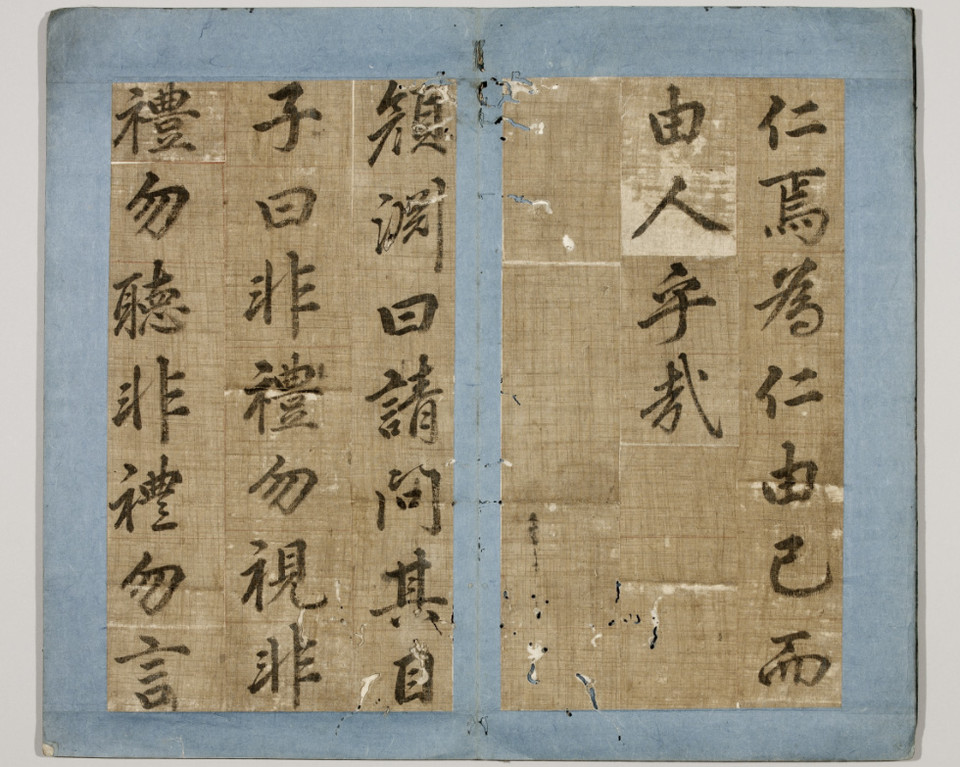 仁焉為仁由己而
由人乎哉
顔淵曰請問其目
子曰非禮勿視非
禮勿聽非禮勿言